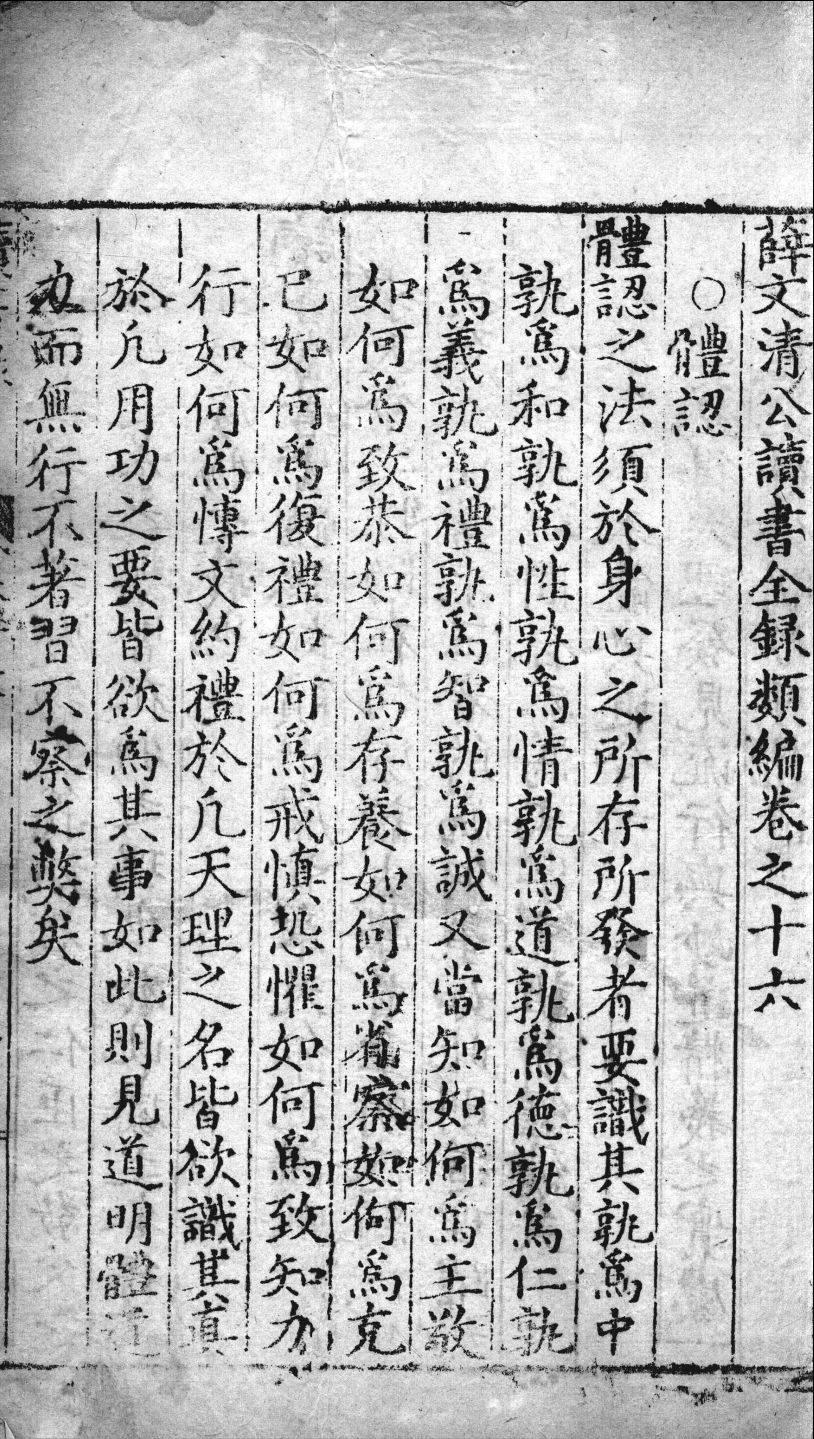 薛文清公讀書全録類編卷之十六
○體認
體認之法須於身心之所存所發者要識其孰爲中
孰爲和孰爲性孰爲情孰爲道孰爲徳孰爲仁孰
爲義孰爲禮孰爲智孰爲誠又當知如何爲主敬
如何爲致恭如何爲存養如何爲省察如何爲克
己如何爲復禮如何爲戒慎恐懼如何爲致知力
行如何爲愽文約禮於凡天理之名皆欲識其真
於凡用功之要皆欲爲其事如此則見道明體道
力而無行不著習不察之獘矣